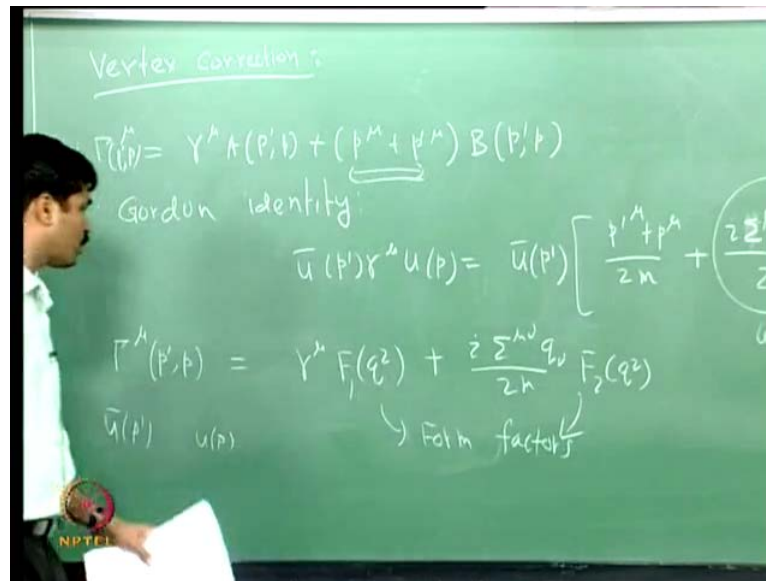 Vertex Correction:
Γ^μ(p',p) = γ^μ A(p',p) + (p^μ + p'^μ) B(p',p)
Gordon identity:
ū(p')γ^μ u(p) = ū(p') [ p'^μ + p^μ / 2m + i Σ^μ
Γ^μ(p',p) = γ^μ F₁(q²) + i Σ^μν q_ν / 2m F₂(q²)
ū(p') u(p) Form factors
NPTEL